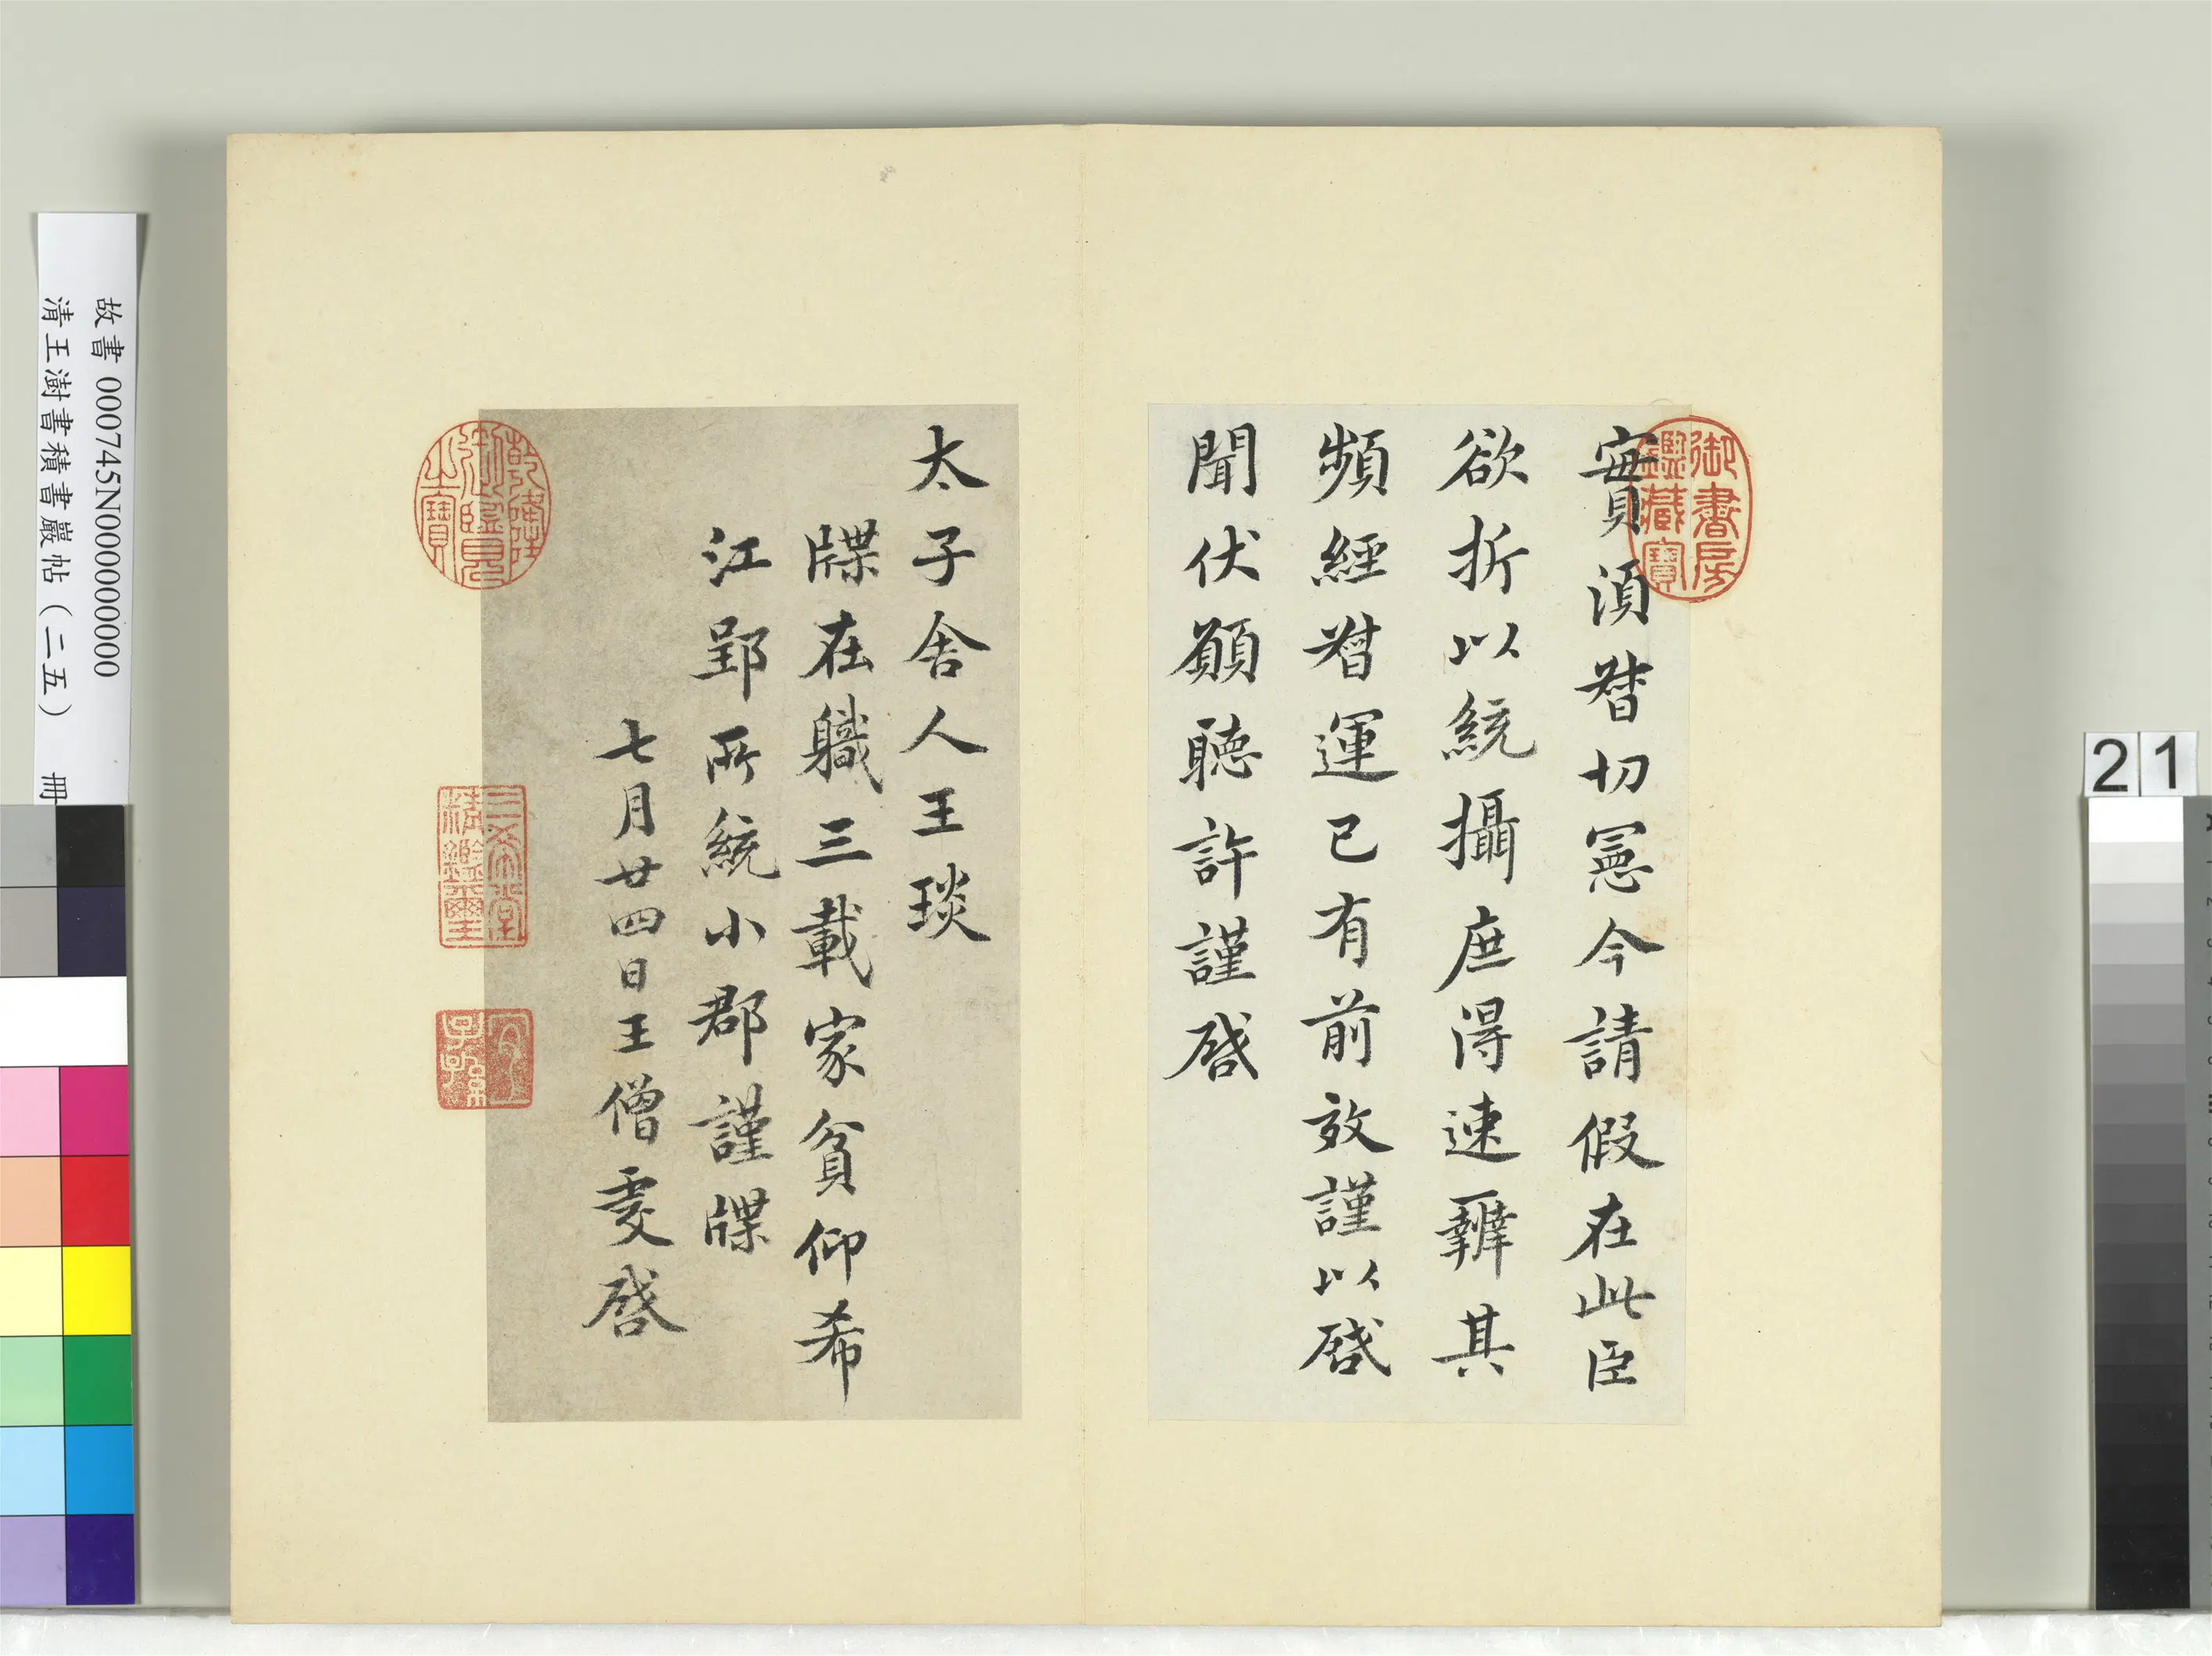 實須督切憲今請假在此臣
欲折以統攝庶得速辦其
頻經督運已有前效謹以啓
聞伏願聽許謹啓
太子舍人王琰
牒在職三載家貧仰希
江郢所統小郡謹牒
七月廿四日王僧虔啓
御書房鑑藏寶
乾隆御覽之寶
三希堂精鑑璽
宜子孫
故書 000745N000000000
清王澍書積書巖帖（二五） 冊
21